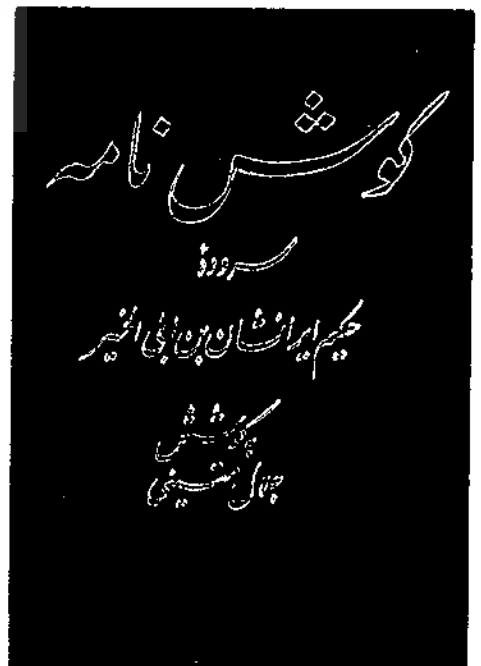 کوش نامه
سرودهٔ
حکیم ایرانشان بن ابی الخیر
به کوشش
جلال متینی